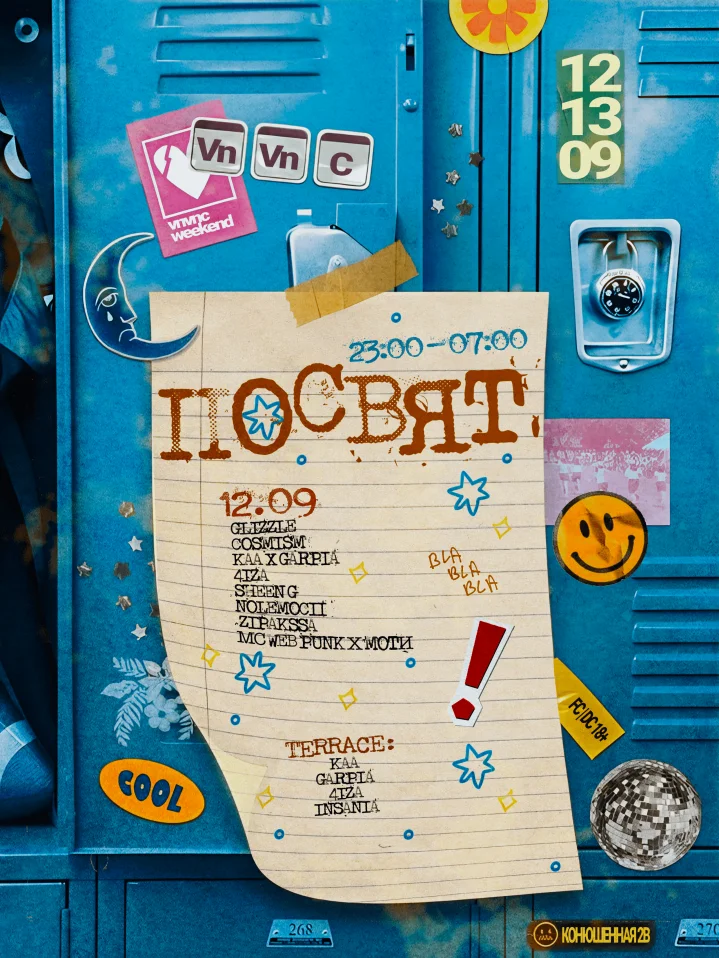 12
13
09
Vn Vn C
vnvnc
weekend
23:00—07:00
ПОСВЯТ
12.09
GLIZZLE
COSMISM
KAA X GARPIA
4IZA
SHEENG
NOLEMOCII
ZIPAKSSA
MC WEB PUNK X MOTH
BLA
BLA
BLA
!
FC/DC 18+
TERRACE:
KAA
GARPIA
4IZA
INSANIA
COOL
268
КОНЮШЕННАЯ 2В
270